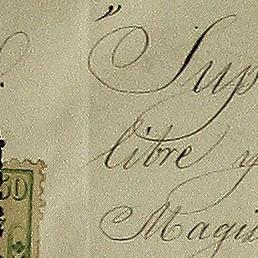 "Sup
libre y
Magis
50